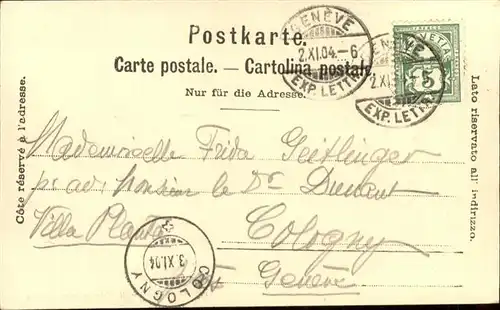 Postkarte.
Carte postale. — Cartolina postale
Nur für die Adresse.
Côte réservé à l'adresse.
Lato riservato all' indirizzo.
GENÈVE
2.XI.04.–6
EXP. LETTR.
GENÈVE
2.XI.
EXP. LETTR.
HELVETIA
5
Mademoiselle Frida Geitlinger
pr adr Monsieur le Dr Dunant
Villa Planta
Cologny
Genève
3.XI.04
COLOGNY